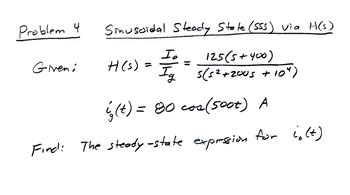 Problem 4 Sinusoidal Steady State (SSS) via H(s)
Given: H(s) = Io/Ig = 125(s+400)/s(s²+200s+10⁴)
ig(t) = 80 cos(500t) A
Find: The steady-state expression for io(t)